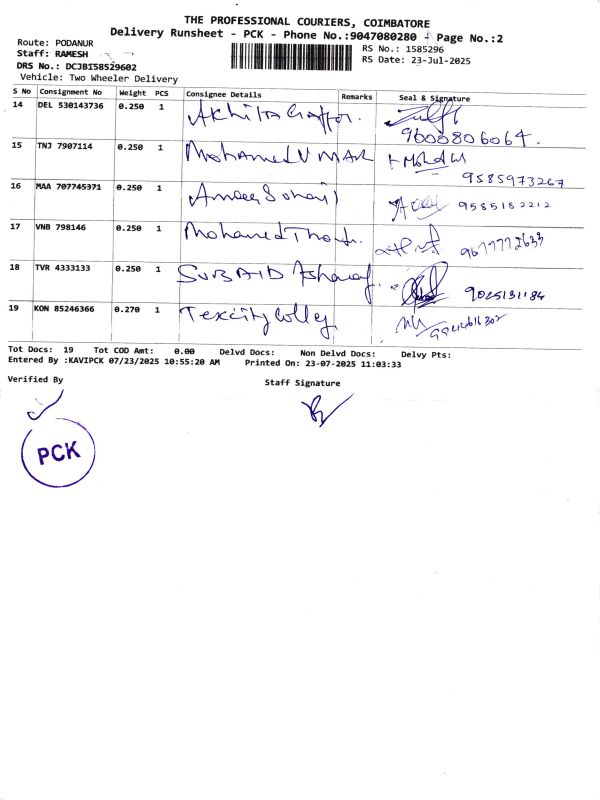 THE PROFESSIONAL COURIERS, COIMBATORE
Delivery Runsheet - PCK - Phone No.:9047080280 - Page No.:2
Route: PODANUR
RS No.: 1585296
Staff: RAMESH
RS Date: 23-Jul-2025
DRS No.: DCJBI58529602
Vehicle: Two Wheeler Delivery
S No Consignment No Weight PCS Consignee Details Remarks Seal & Signature
14 DEL 530143736 0.250 1 Akhila Gaffor. 9600806064.
15 TNJ 7907114 0.250 1 Mohamed UMAR 9585973267
16 MAA 707745371 0.250 1 9585182212
17 VNB 798146 0.250 1 Mohamed 9677772633
18 TVR 4333133 0.250 1 SUBAID Ashraf. 9025131184
19 KON 85246366 0.270 1 Texcity Colleg
Tot Docs: 19 Tot COD Amt: 0.00 Delvd Docs: Non Delvd Docs: Delvy Pts:
Entered By :KAVIPCK 07/23/2025 10:55:20 AM Printed On: 23-07-2025 11:03:33
Verified By
Staff Signature
PCK